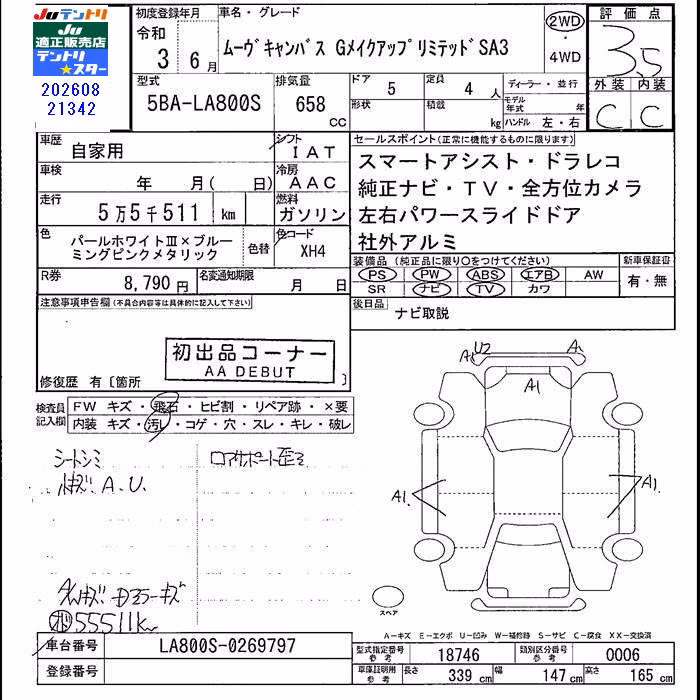 JUテントリ
JU 適正販売店
テントリ★スター
202608
21342
初度登録年月
令和
3 6月
車名・グレード
ムーヴキャンバス GメイクアップリミテッドSA3
2WD
・
4WD
評価点
3.5
外装 内装
C C
型式
5BA-LA800S
排気量
658 CC
ドア 5
形状
定員 4 人
積載 kg
ディーラー・並行
モデル年式 年
ハンドル 左・右
車歴 自家用
車検 年 月( 日)
走行 5万5千511 km
色 パールホワイトⅢ×ブルーミングピンクメタリック
色替
シフト IAT
冷房 AAC
燃料 ガソリン
色コード XH4
R券 8,790円
名変通知期限 月 日
セールスポイント(正常に機能するものに限ります)
スマートアシスト・ドラレコ
純正ナビ・TV・全方位カメラ
左右パワースライドドア
社外アルミ
装備品(純正品に限り○をつけてください)
PS PW ABS エアB AW
SR ナビ TV カワ
新車保証書
有・無
後日品 ナビ取説
注意事項申告欄(不具合内容等は具体的に記入して下さい)
初出品コーナー
AA DEBUT
修復歴 有〔箇所 〕
検査員記入欄
FW キズ・飛石・ヒビ割・リペア跡・×要
内装 キズ・汚レ・コゲ・穴・スレ・キレ・破レ
シートシミ
小キズ A.U.
コアサポート歪ミ
55511km
A1 U2 A1
A1
A1. A1.
スペア
A-キズ E-エクボ U-凹ミ W-補修跡 S-サビ C-腐食 XX-交換済
車台番号 LA800S-0269797
登録番号
型式指定番号 参考 18746
類別区分番号 参考 0006
車庫証明用 参考 長さ 339 cm 幅 147 cm 高さ 165 cm